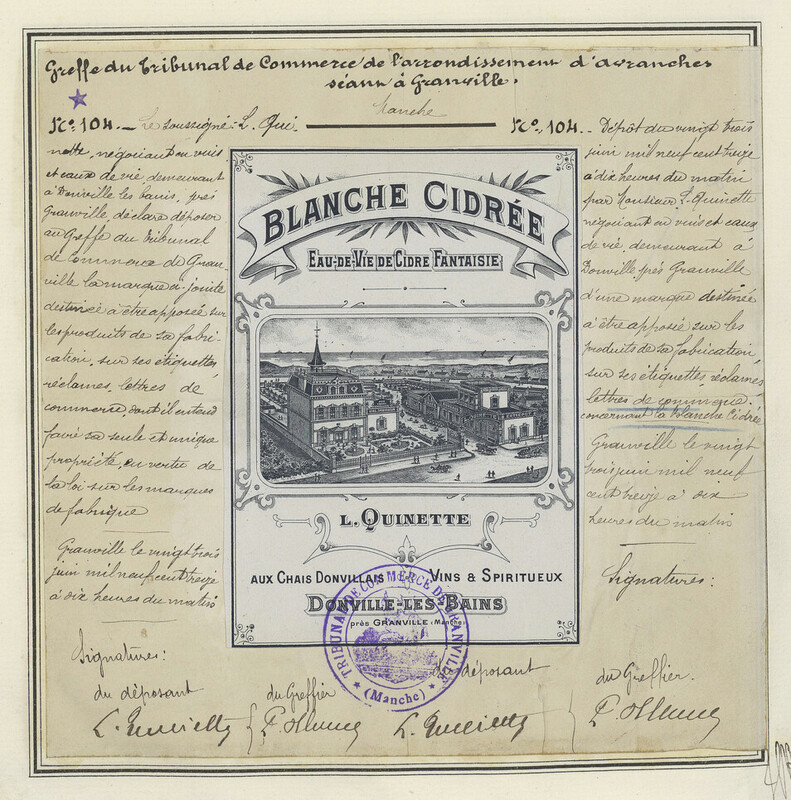 Greffe du Tribunal de Commerce de l'arrondissement d'avranches
séant à Granville.
Manche
No. 104. — Le soussigné: L. Qui-
nette, négociant en vins
et eaux de vie demeurant
à Donville les bains, près
Granville, déclare déposer
au Greffe du Tribunal
de Commerce de Gran-
ville la marque ci-jointe
destinée à être apposée sur
les produits de sa fabri-
cation, sur ses étiquettes
réclames, lettres de
commerce, dont il entend
faire sa seule et unique
propriété, en vertu de
la loi sur les marques
de fabrique
Granville le vingt trois
juin mil neuf cent treize
à dix heures du matin
Signatures:
du déposant
du Greffier
BLANCHE CIDRÉE
EAU-DE-VIE DE CIDRE FANTAISIE
L. QUINETTE
AUX CHAIS DONVILLAIS VINS & SPIRITUEUX
DONVILLE-LES-BAINS
près GRANVILLE (Manche)
TRIBUNAL DE COMMERCE DE GRANVILLE
(Manche)
No. 104. — Dépôt du vingt trois
juin mil neuf cent treize
à dix heures du matin
par Monsieur L. Quinette
négociant en vins et eaux
de vie demeurant à
Donville près Granville
d'une marque destinée
à être apposée sur les
produits de sa fabrication,
sur ses étiquettes réclames,
lettres de commerce.
concernant la blanche Cidrée
Granville le vingt
trois juin mil neuf
cent treize à dix
heures du matin
Signatures:
du déposant
du Greffier.